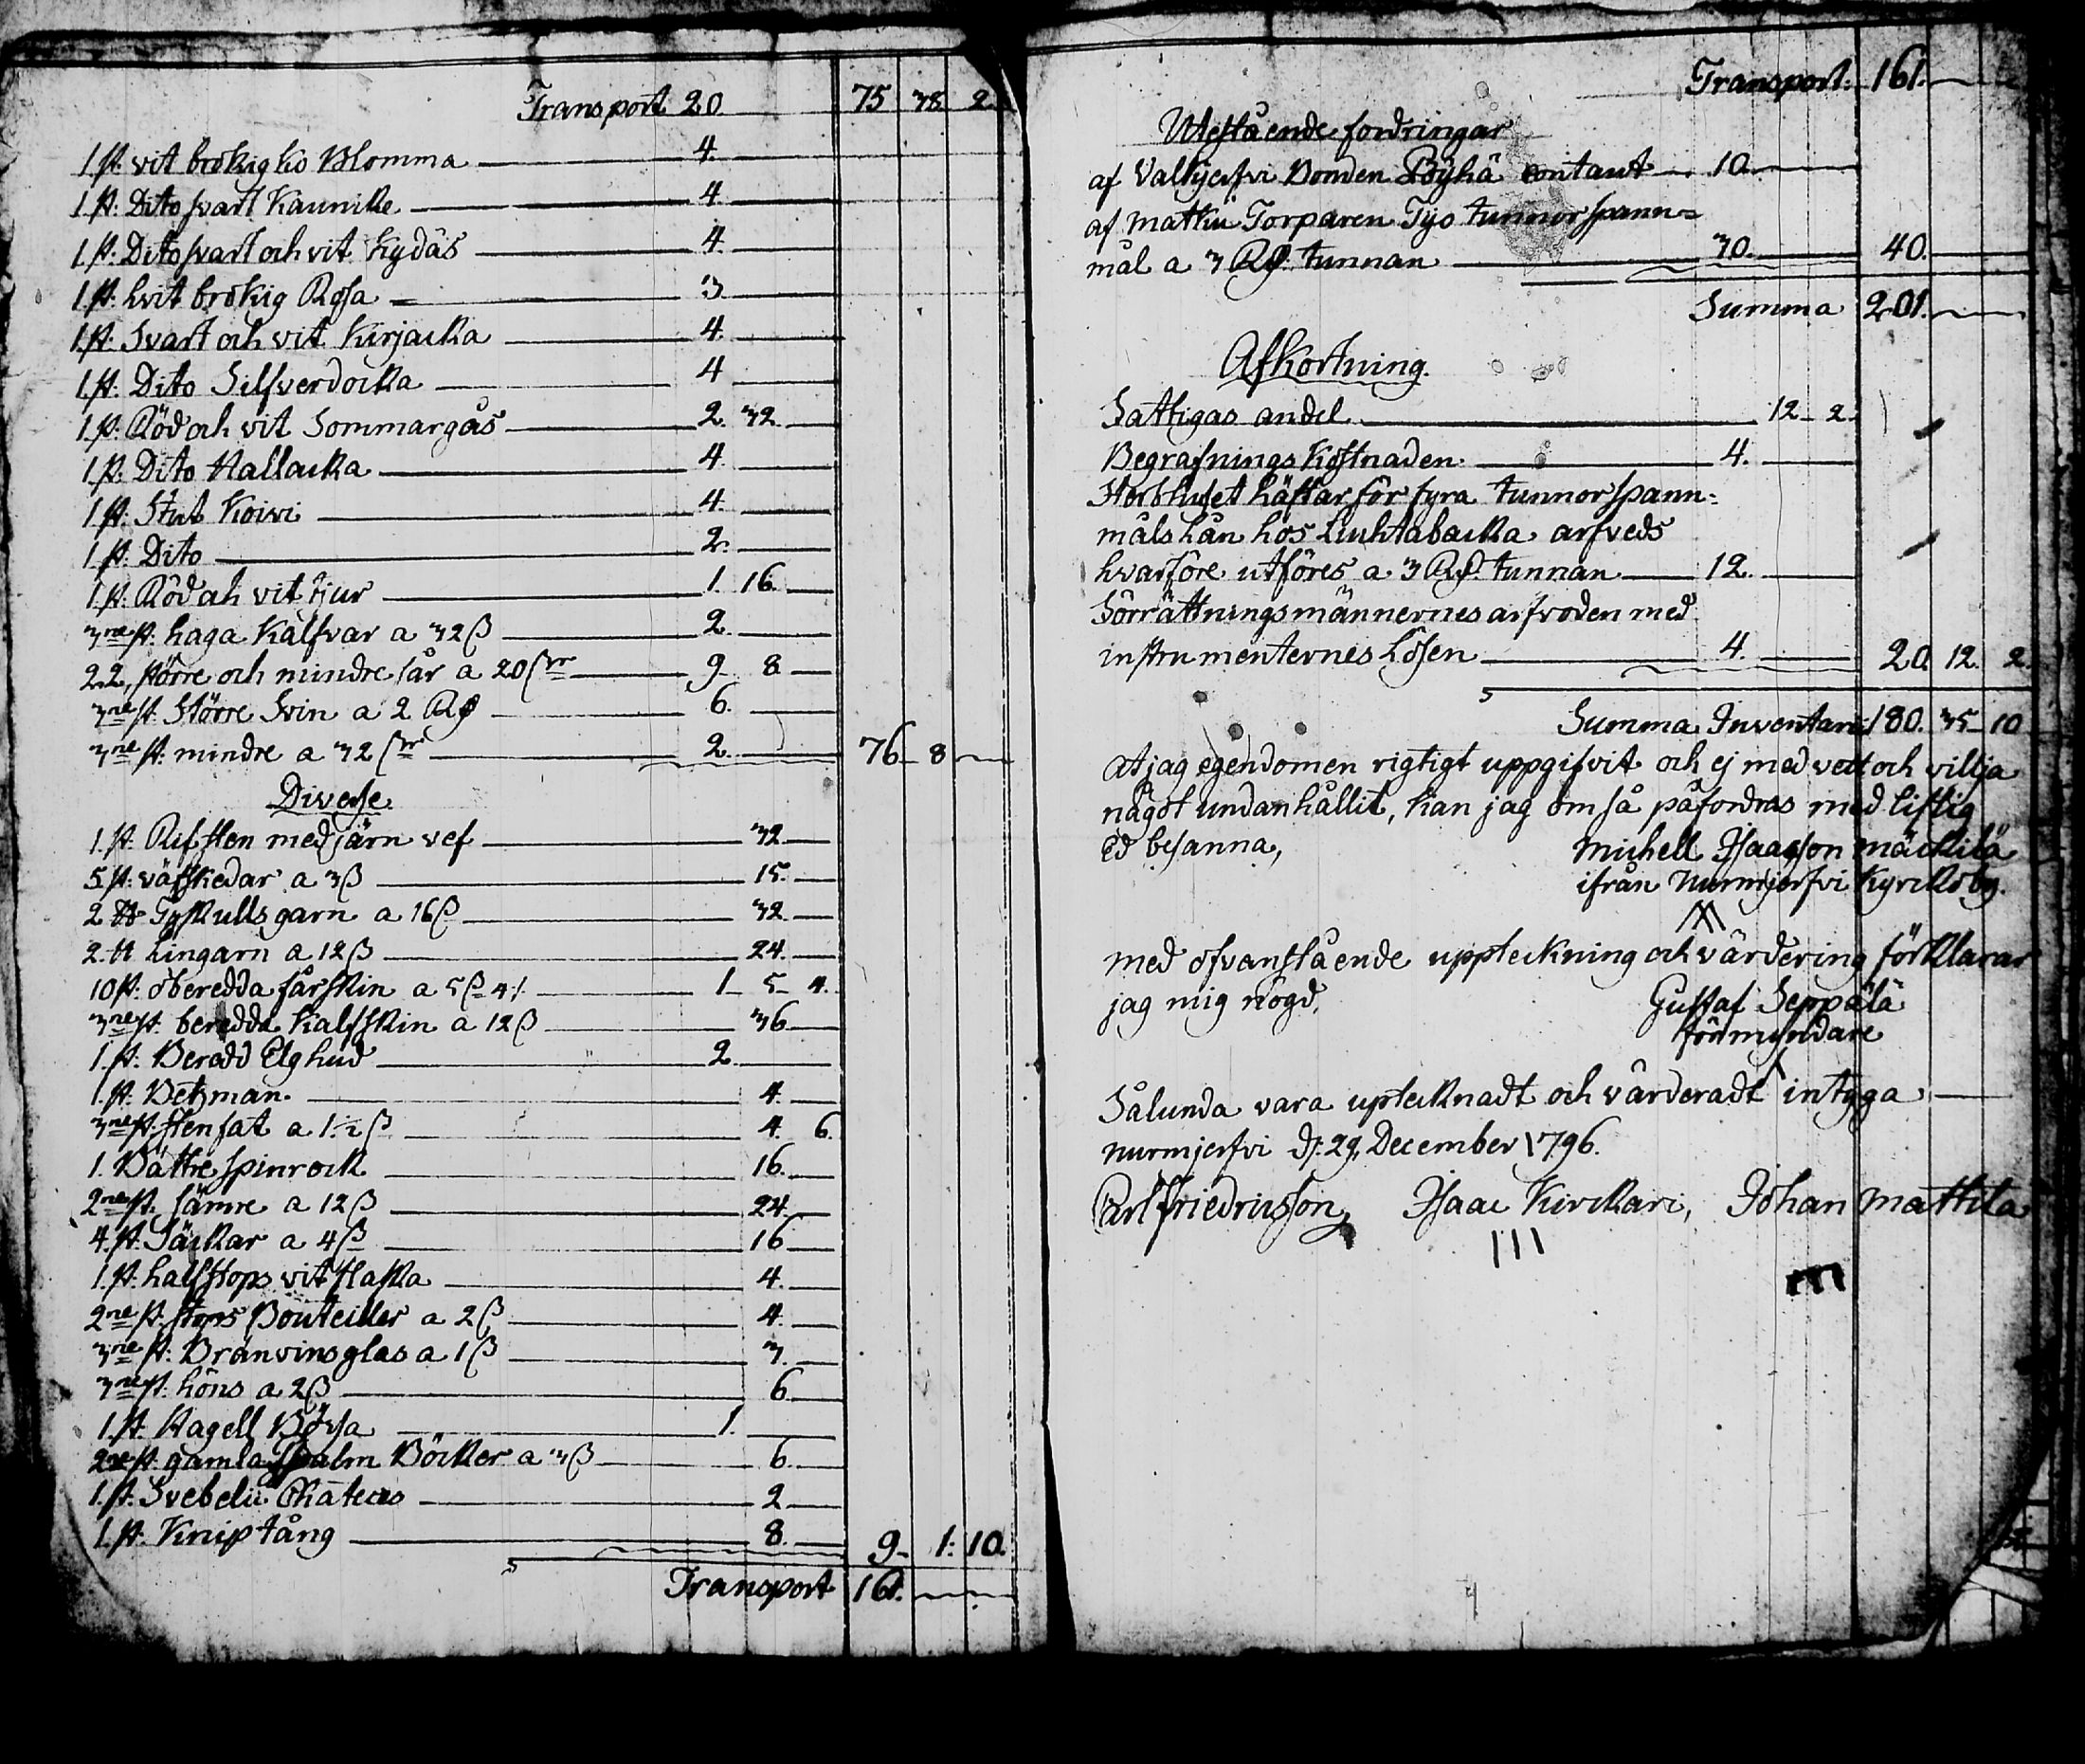 Transport 20. 75 38 2.
1 st: vit brokig ko Blomma 4.
1 st: Dito svart Kaunike 4
1 st: Dito svart och vit Kydäs 4.
1 st: hvit brokig Rosa 3.
1 st: Svart och vit Kirjacka 4.
1 st: Dito Silfverdocka 4
1 st: Röd och vit Sommargås 2. 32.
1 st: Dito Hallacka 4.
1 st: Stut Koivi 4.
1 st: Dito 2.
1 st: Röd och vit tjur 1. 16.
3ne st: haga Kalfvar a 32 ß 2.
22, större och mindre får a 20 sr 9. 8.
3ne st: Större Svin a 2 Rd 6.
3ne st: mindre a 32 sr 2. 76. 8
Diverse.
1 st: Rifsten med järn vef 32
5 st: väfskedar a 3 ß 15.
2 ℔ Tyskullsgarn a 16 ß 32.
2 ℔ Lingarn a 12 ß 24.
10 st: oberedda fårskin a 5 ß 4 1. 5. 4.
3ne st: beredda Kalfskin a 12 ß 36
1 st: Beredd Elghud 2.
1 st: Betzman. 4.
3ne st: stenfat a 1 1/2 ß 4. 6.
1. Bättre spinrock 16.
2ne st: sämre a 12 ß 24.
4 st: Säckar a 4 ß 16
1 st: halfstops vit flaska 4.
2ne st: stops Bouteiller a 2 ß 4.
3ne st: Bränvinsglas a 1 ß 3.
3ne st: höns a 2 ß 6
1 st: Hagell Bössa 1.
2ne st: gamla Psalm Böcker a 3 ß 6.
1 st: Svebelii 2
1 st: Kniptång 8. 9. 1. 10.
Transport 161.
Transport: 161.
Utestående fordringar
af Valkjerfvi Bonden Pöyhä contant 10.
af Mattku Torparen Tijo tunnor spann=
mål a 3 Rd. tunnan 30. 40.
Summa 201.
Afkortning.
Fattigas andel 12. 2.
Begrafnings Kostnaden 4.
Sterbhuset häftar för fyra tunnor spann=
måls Lån hos Luhtabacka arfveds
hvarföre utföres a 3 Rd. tunnan 12.
Förrättningsmännernes arfvoden med
instrumenternes Lösen 4. 20. 12. 2.
Summa Inventarii 180. 35. 10
At jag egendomen rigtigt uppgifvit och ej med vett och villja
något undanhållit, kan jag om så påfordras med liflig
Ed besanna,
Michell Isaacson Mäckilä
ifrån Nurmjerfvi Kyrckoby.
med ofvanstående uppteckning och värdering förklarar
jag mig nögd,
Gustaf Seppälä
förmyndare
Sålunda vara uptecknadt och värderadt intyga
Nurmjerfvi d: 29, December 1796.
Carl Friedricsson, Isaac Kirckari, Johan Mattila